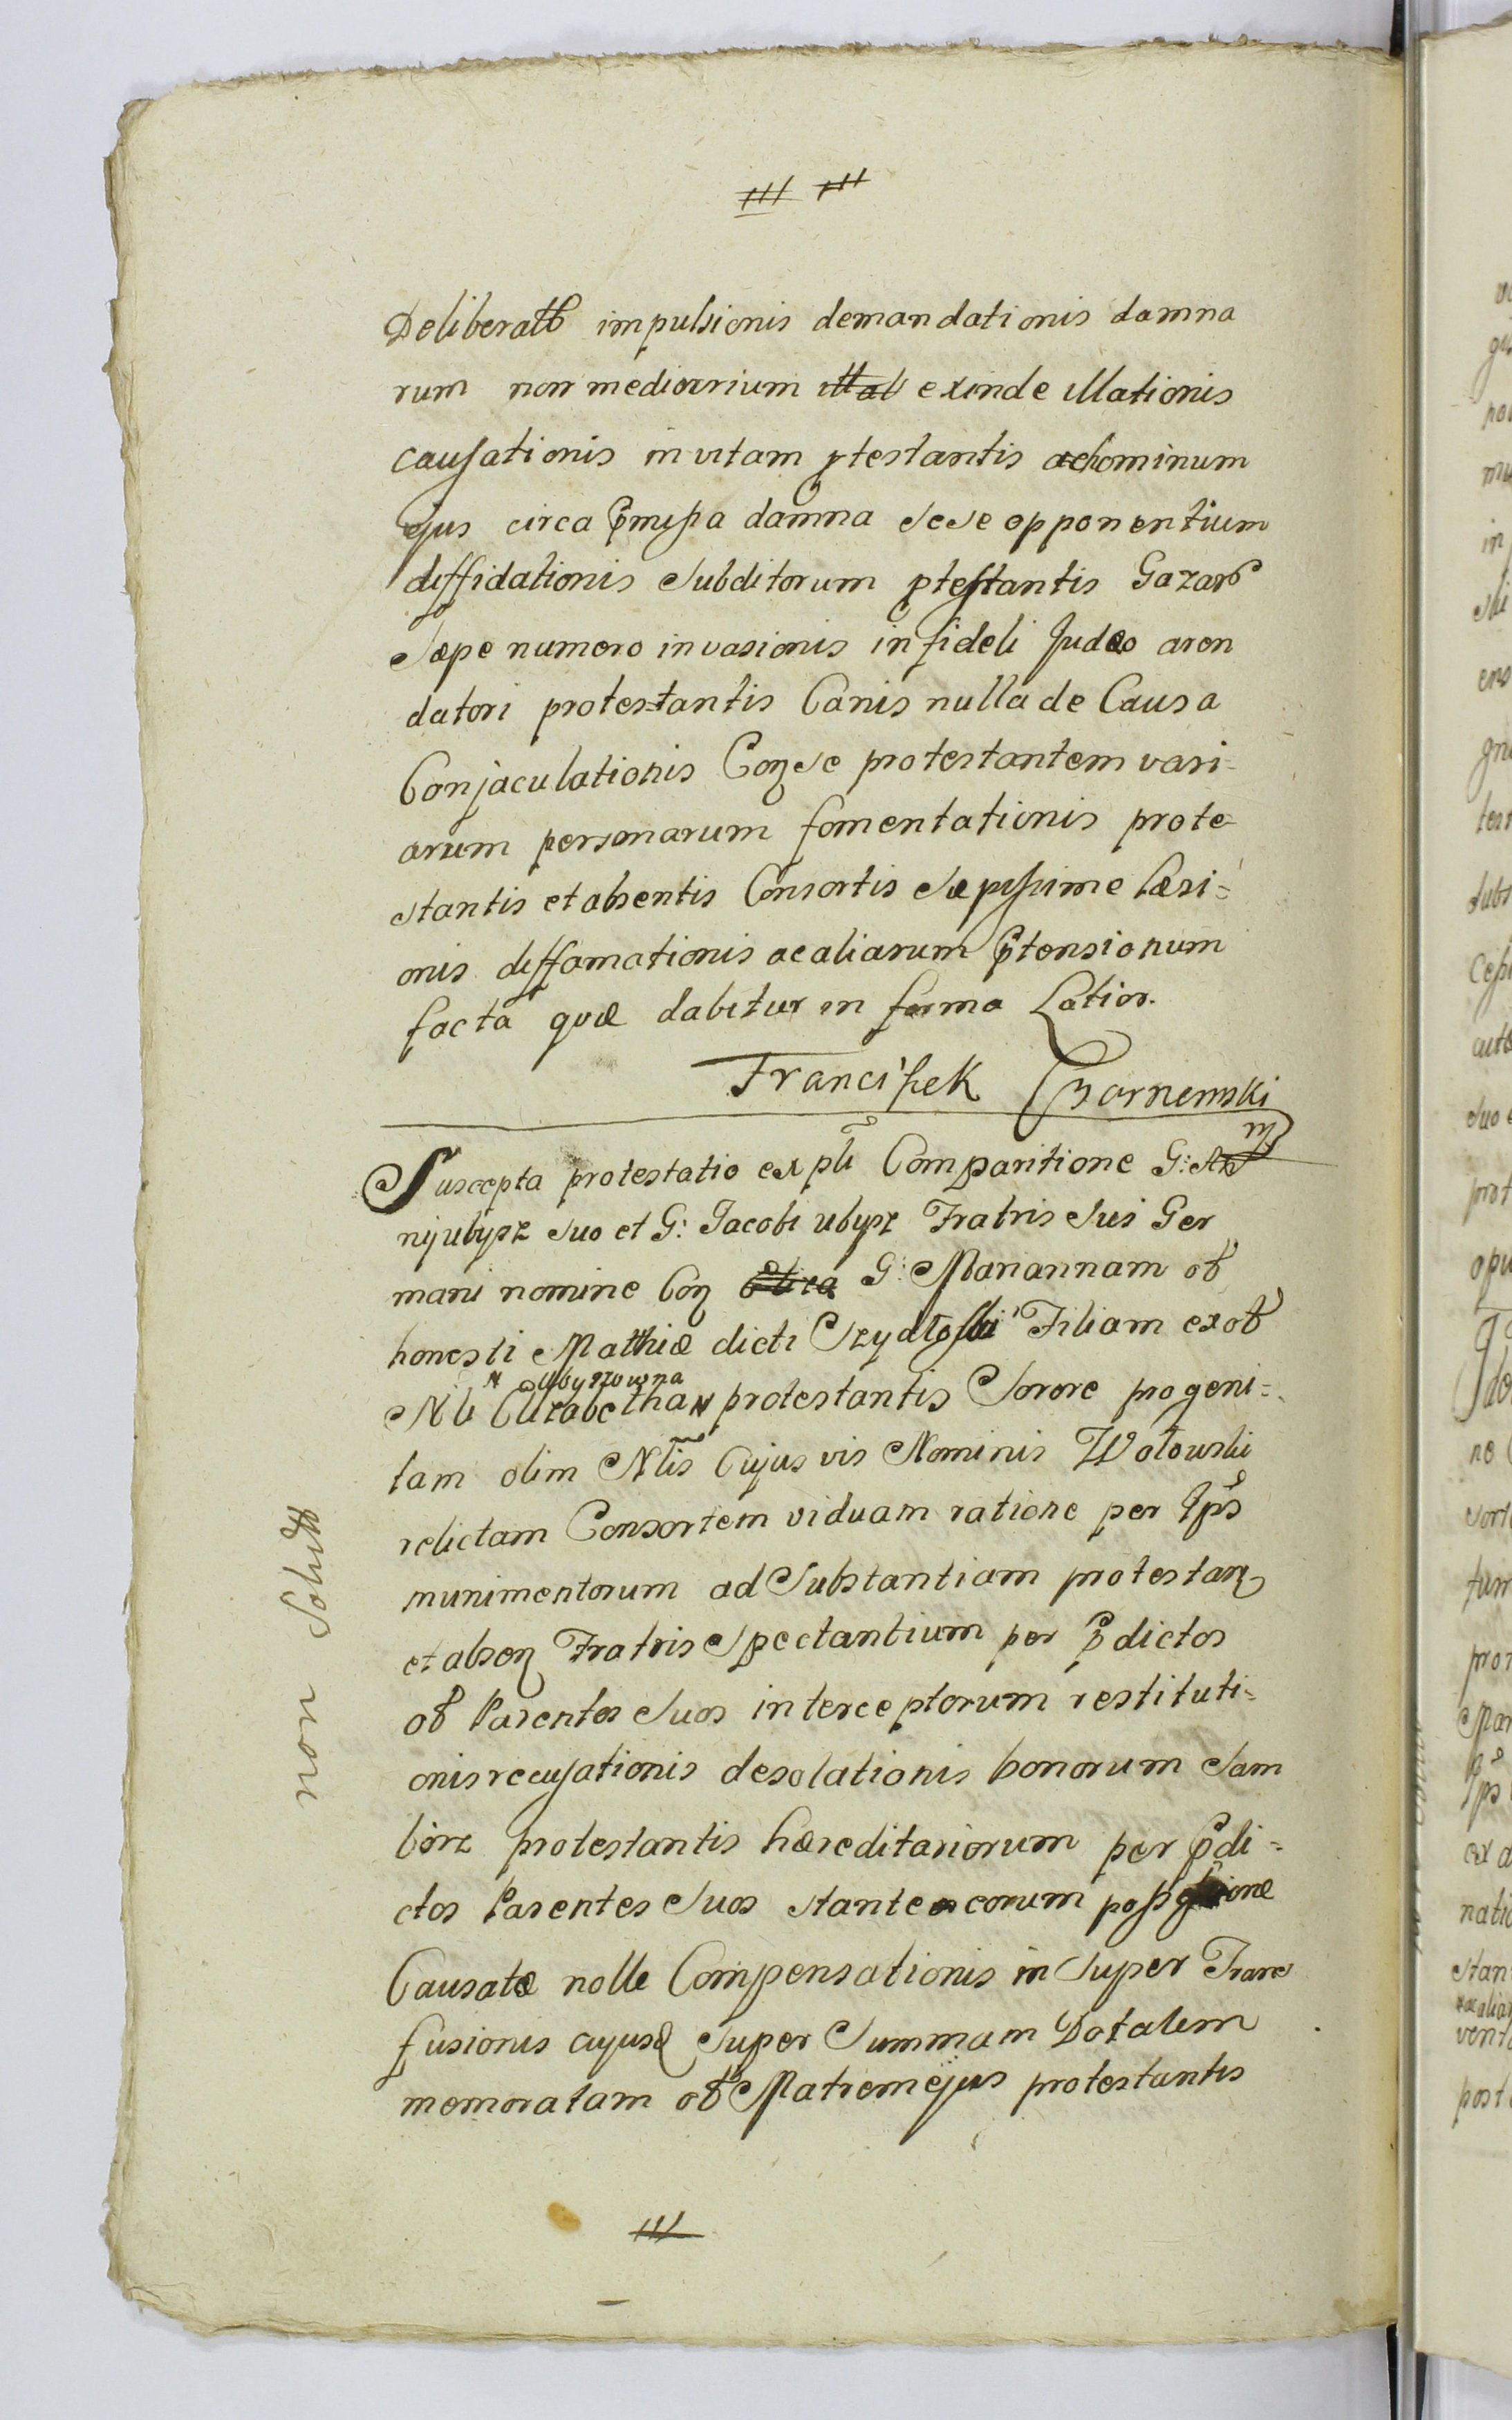 Deliberatt impulsionis demandationis damna
rum non mediocrium exinde illationis
causationis in vitam ptestantis ac hominum
ejus circa pmissa damna sese opponentium
diffidationis subditorum ptestantis
sæpe numero invasionis infideli Judæo aron
datori protestantis Canis nulla de Causa
Conjaculationis Con se protestantem vari-
arum personarum fomentationis prote-
stantis et absentis Consortis sæpissime læsi=
onis diffamationis ac aliarum ptensionum
facta quæ dabitur in forma Latior.
Franciszek Czarnemski
mp
Suscepta protestatio ex pli Comparitione G: An
nij ubysz suo et G: Jacobi ubysz Fratris sui Ger
mani nomine Con G: Mariannam ob
honesti Matthiæ dicti Szydłoski Filiam ex ob
Ubyszowna
Nli Elizabetha protestantis Sorore progeni=
tam olim Nlis Cujus vis Nominis Wołowski
relictam Consortem viduam ratione per Ips
munimentorum ad Substantiam protestan
et absen Fratris Spectantium per pdictos
ob Parentes suos interceptorum restituti=
onis recusationis desolationis bonorum Sam
borz protestantis hæreditariorum per pdi=
ctos Parentes suos stante eorum possessione
Causatæ nolle Compensationis in super Trans
fusionis cujusd super Summam Dotalem
memoratam ob Matrem ejus protestantis
non Solutt